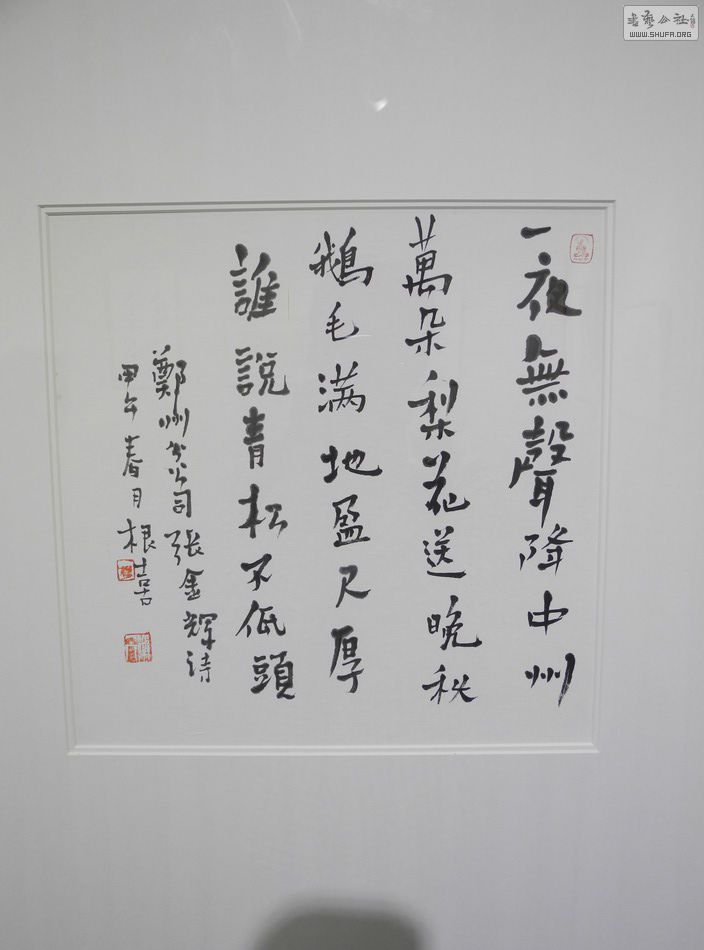 一夜無聲降中州
萬朵梨花送晚秋
鵝毛满地盈尺厚
誰説青松不低頭
鄭州分公司張金輝詩
甲午春月根喜
書藝公社
WWW.SHUFA.ORG